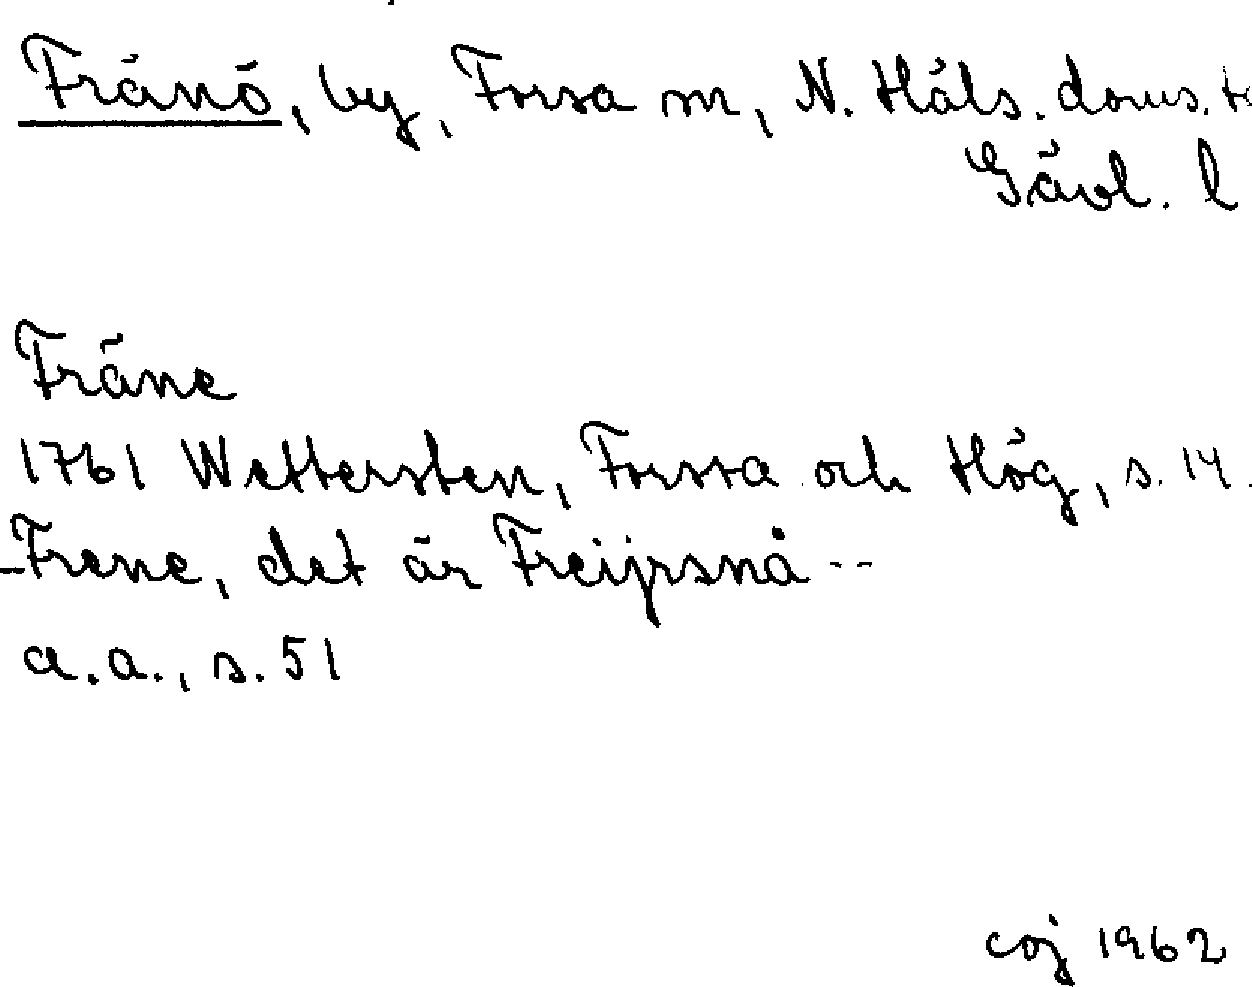 Fränö, by, Forsa sn, N. Häls. doms.
Gävl. l
Fräne
1761 Wettersten, Forssa och Hög, s. 14.
-Frene, det är Freijrsnå --
a.a., s. 51
coj 1962